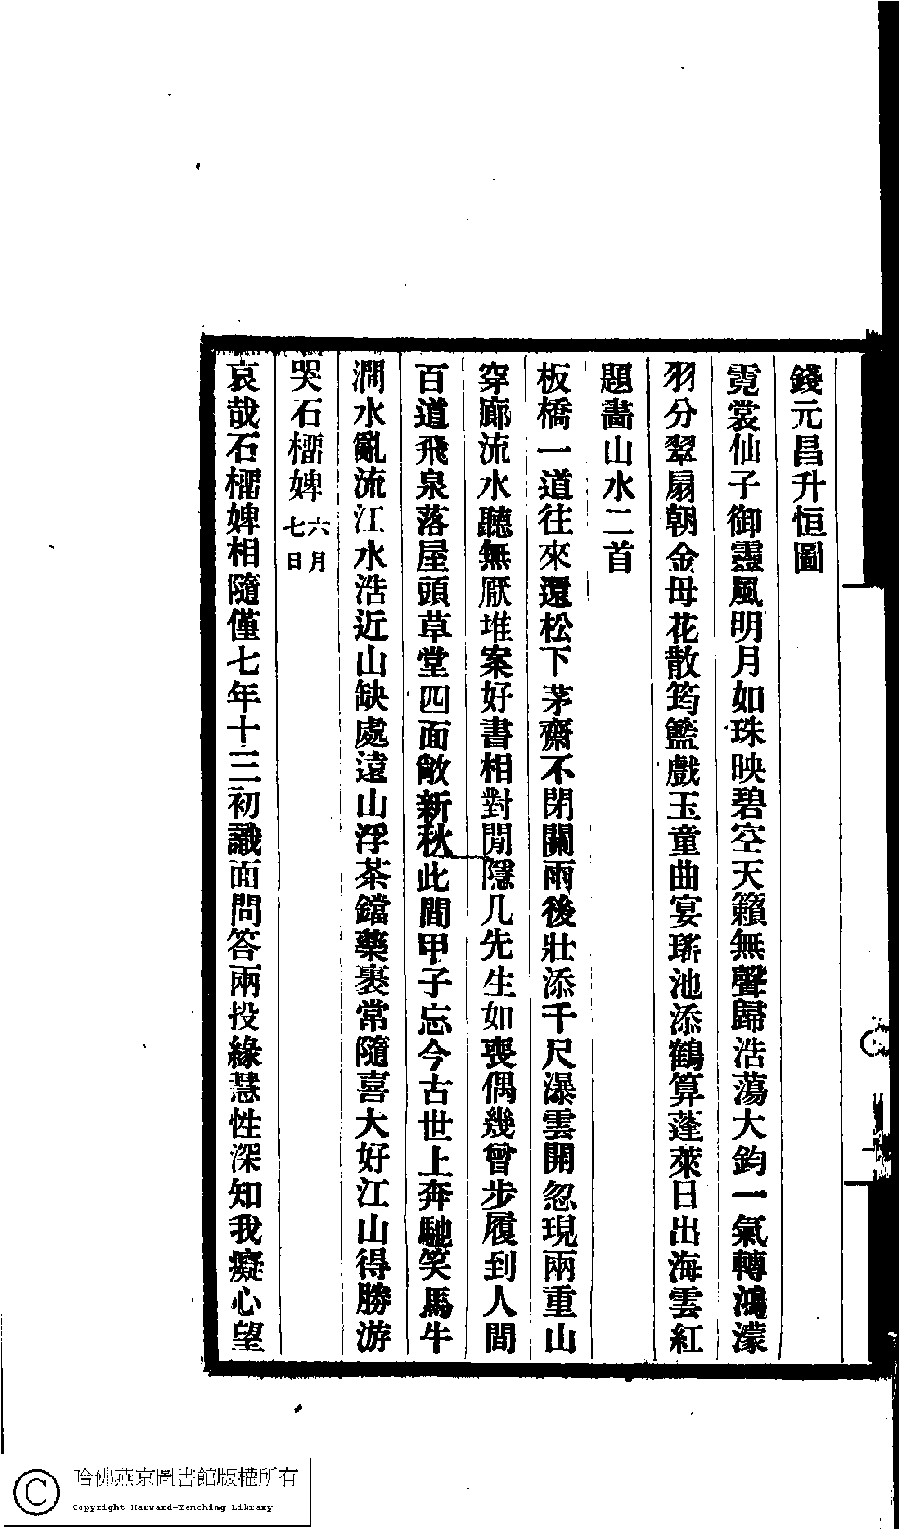 錢元昌升恒圖
霓裳仙子御靈風明月如珠映碧空天籟無聲歸浩蕩大鈞一氣轉鴻濛
羽分翠扇朝金母花散筠籃戲玉童曲宴瑤池添鶴算蓬萊日出海雲紅
題畵山水二首
板橋一道往來還松下茅齋不閉關雨後壯添千尺瀑雲開忽現兩重山
穿廊流水聽無厭堆案好書相對閒隱几先生如喪偶幾曾步履到人間
百道飛泉落屋頭草堂四面敞新秋此間甲子忘今古世上奔馳笑馬牛
澗水亂流江水浩近山缺處遠山浮茶鐺藥裹常隨喜大好江山得勝游
哭石橊婢六月七日
哀哉石橊婢相隨僅七年十三初識面問答兩投緣慧性深知我癡心望
哈佛燕京圖書館版權所有
Copyright Harvard-Yenching Library